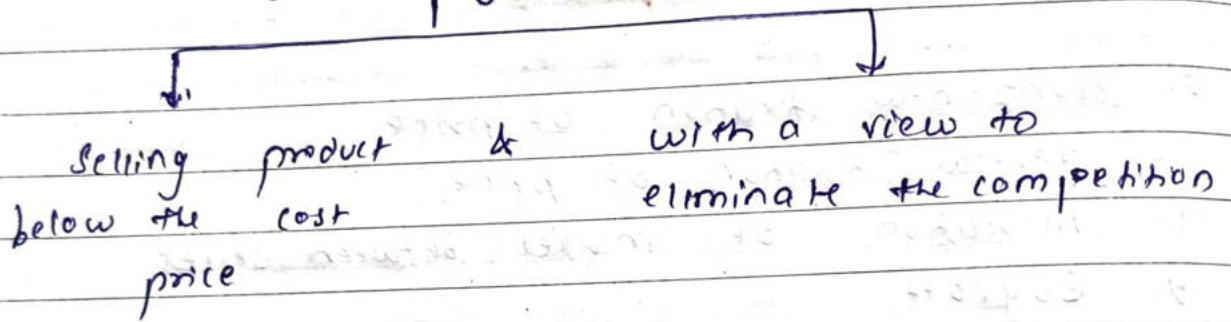 selling product & with a view to
below the cost eliminate the competition
price